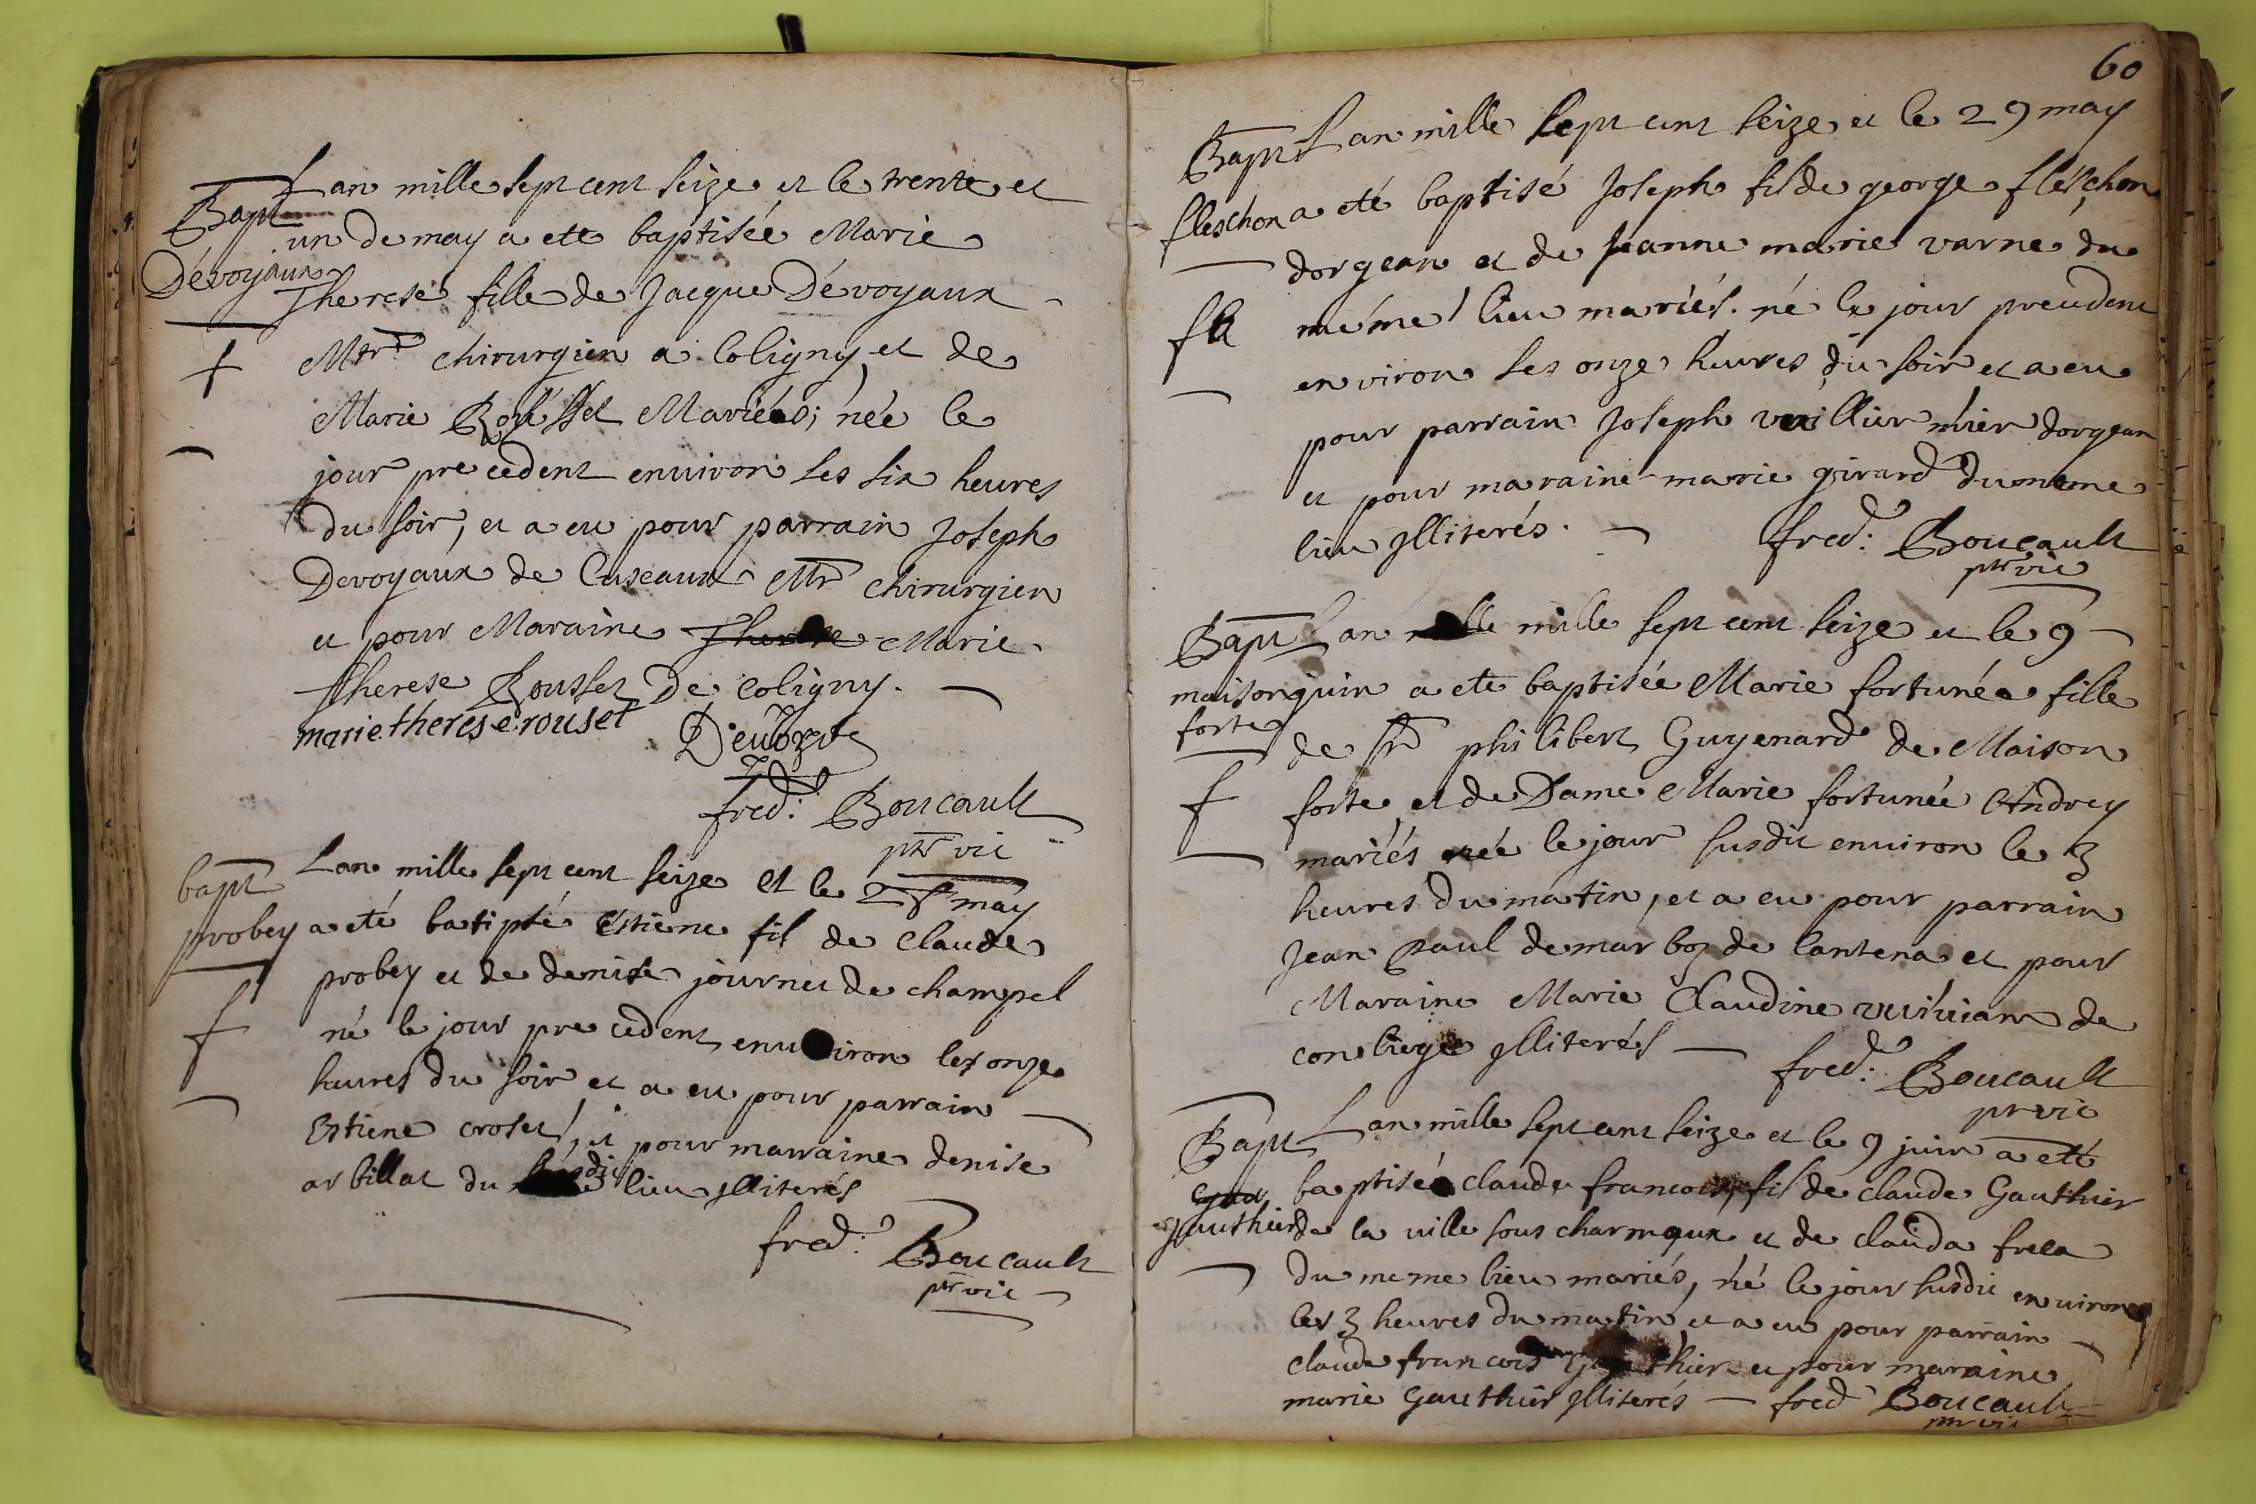 Bapt
Dévoyaux
f
Lan mille sept cent seize et le trente et
un de may a ete baptisée Marie
Therese fille de Jacque Dévoyaux
Mtre chirurgien a Coligny, et de
Marie Rousset Mariées; née le
jour precedent environ les six heures
du soir, et a eu pour parrain Joseph
Devoyaux de Cuseaux Mtr chirurgien
et pour Maraine Therese Marie
therese Rousset De Coligny.
marie therese rouset
fred: Boucault
ptr vic
bapt
probey
f
Lan mille sept cent seize et le may
a eté batipsé Estiene fil de Claude
probey et de denise journet de champel
né le jour precedent environ les onze
heures du soir et a eu pour parrain
Estiene croset, et pour marraine denise
arbillat du susdit lieu jlliterés
fred: Boucault
ptr vic
60
Bapt
fleschon
fli
Lan mille sept cent seize et le 29 may
a eté baptisé Joseph fil de george fleschon
dorgean et de Jeanne marie varne du
méme lieu mariés. né le jour precedent
environ les onze heures du soir et a eu
pour parrain Joseph vuillier mier dorgean
et pour maraine marie girard du meme
lieu jlliterés.
fred: Boucault
ptr vic
Bapt
maison
forte
f
Lan mille mille sept cent seize et le 9
juin a ete baptisée Marie fortunée fille
de Sr philibert Guyenard de Maison
forte, et de Dame Marie fortunée Andrey
mariés née le jour susdit environ le 3
heures du matin, et a eu pour parrain
Jean paul de marboz de lantena et pour
Maraine Marie Claudine vuiuian de
conliege jlliterés
fred: Boucault
ptr vic
Bapt
gau
gauthier
Lan mille sept cent seize et le 9 juin a eté
baptisé claude francois, fil de claude Gauthier
de la ville sous charmoux et de clauda frela
du meme lieu mariés, né le jour susdit environ
les 3 heures du matin et a eu pour parrain
claude francois Gauthier et pour maraine
marie Gauthier jlliterés fred Boucault
ptr vic